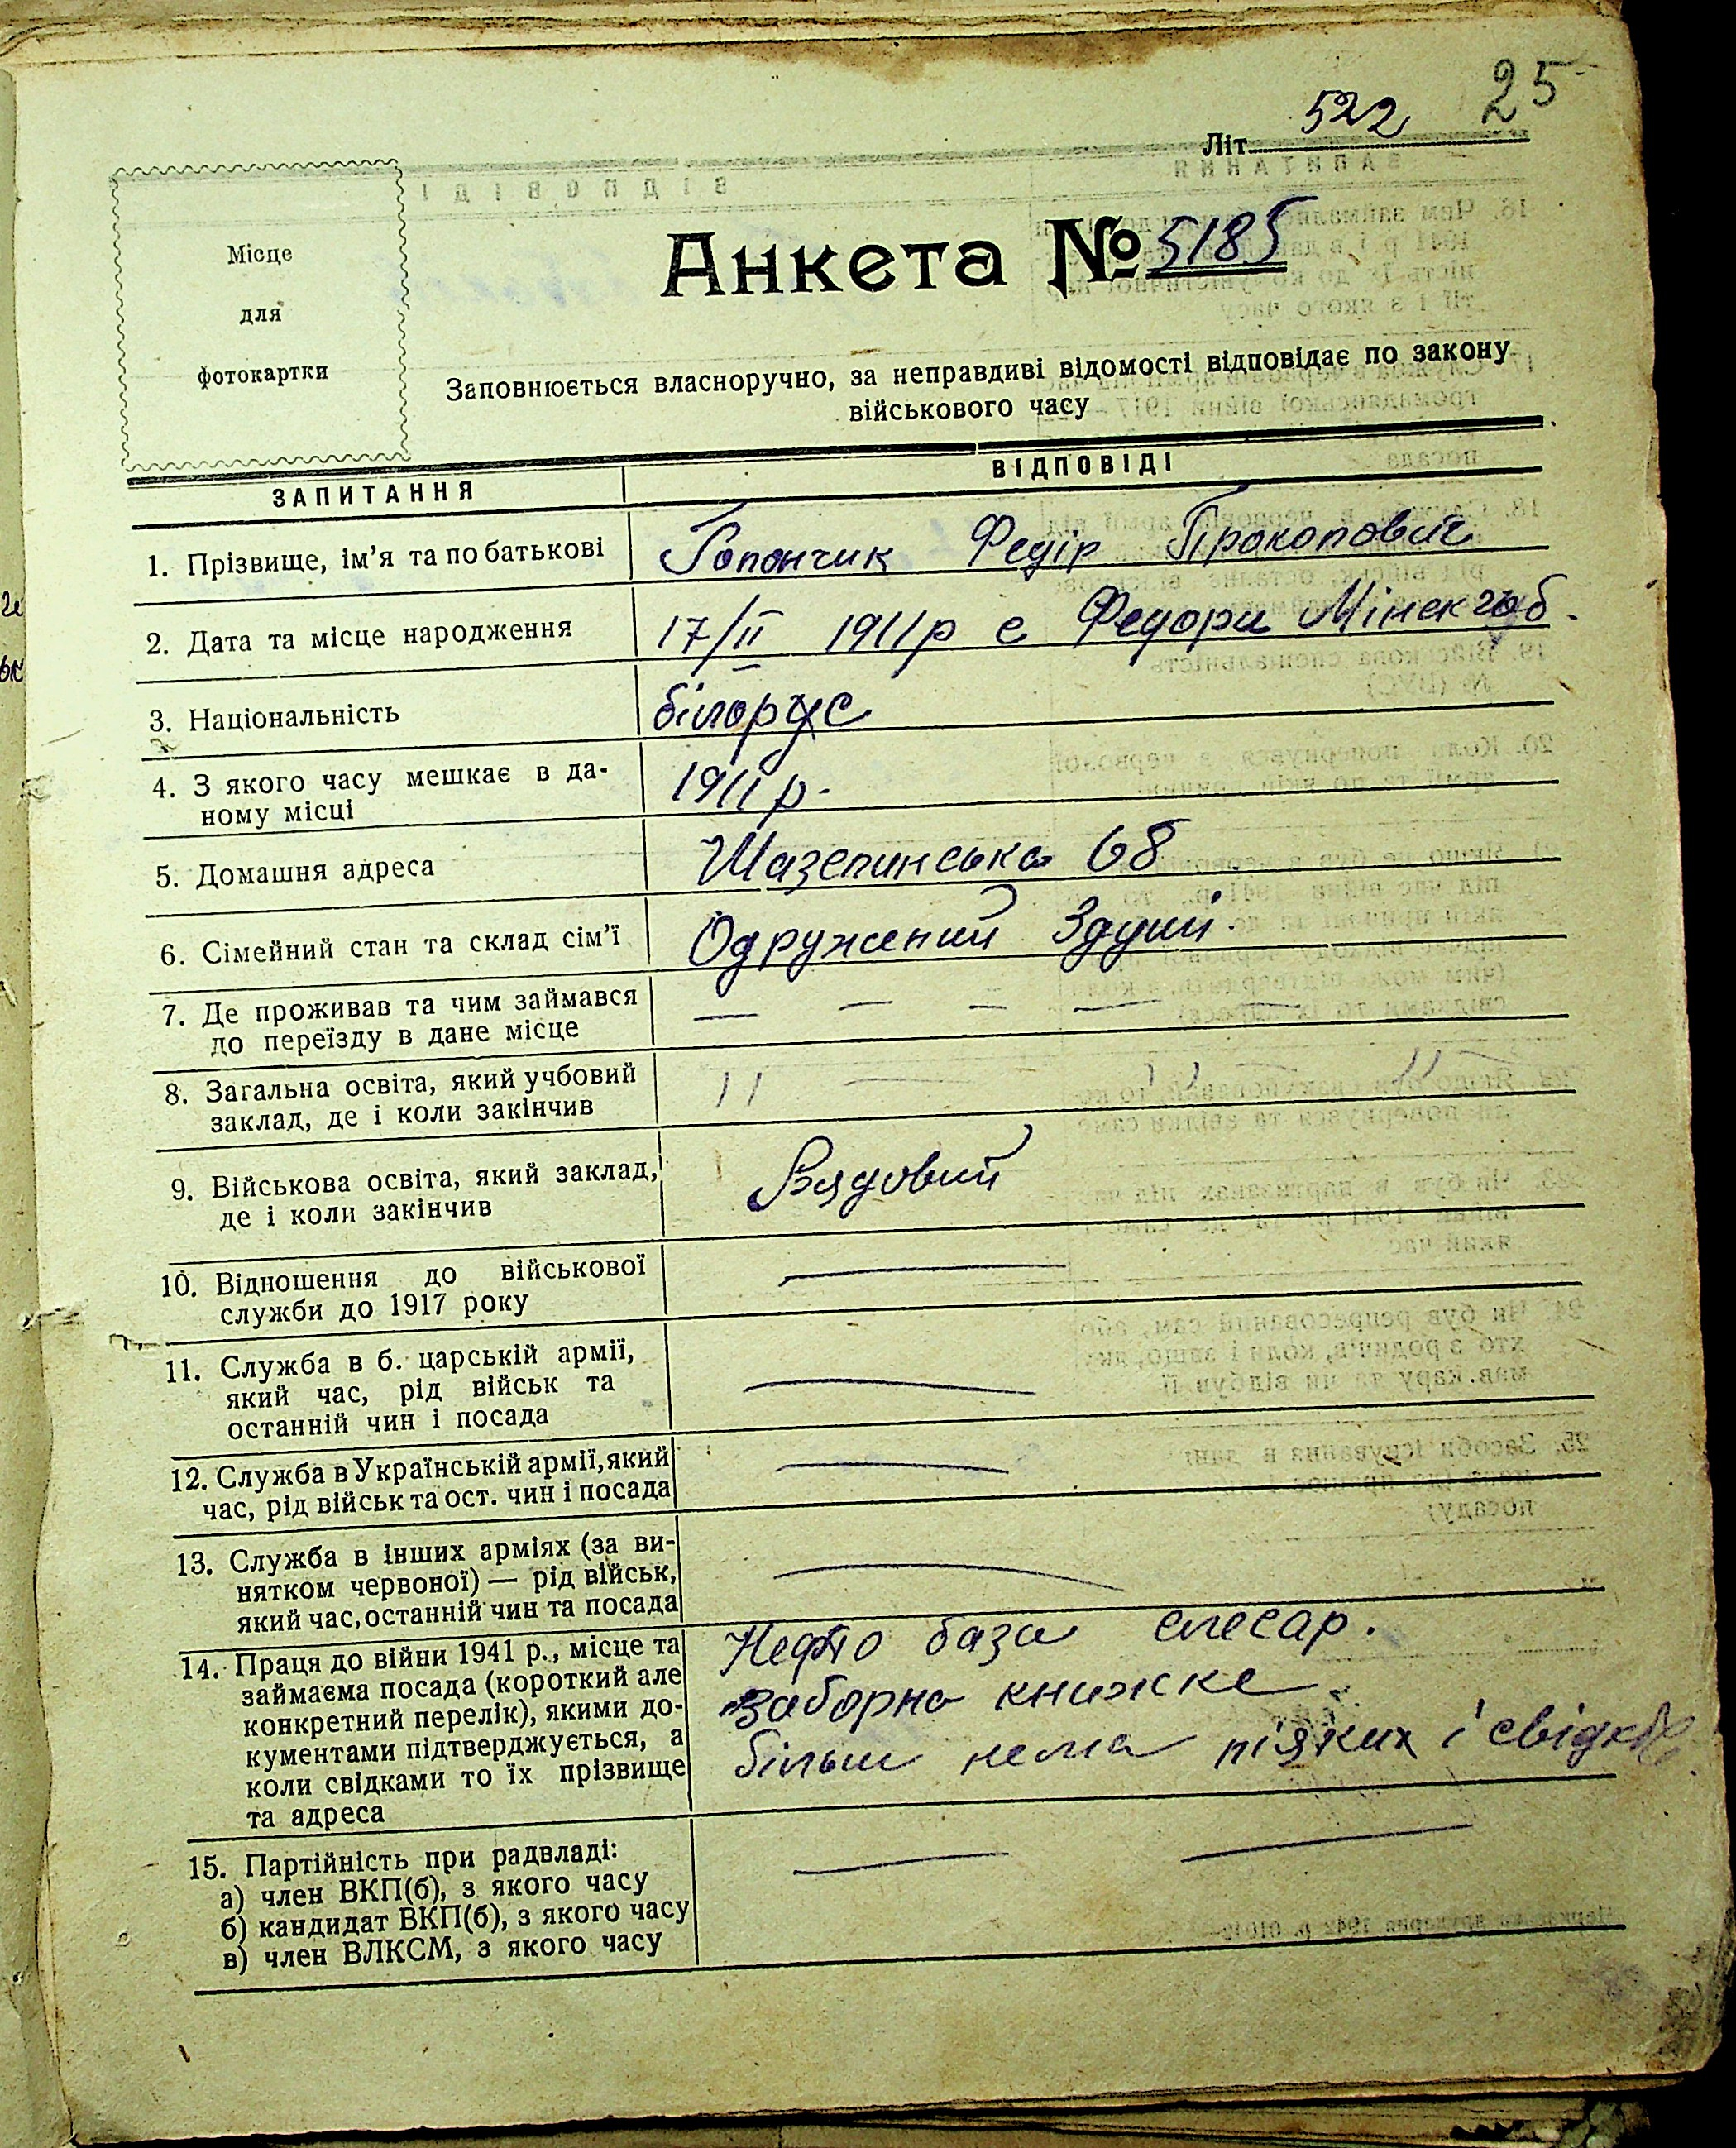 25
Літ. 522
Місце
для
фотокартки
Анкета № 5185
Заповнюється власноручно, за неправдиві відомості відповідає по закону
військового часу
ЗАПИТАННЯ ВІДПОВІДІ
1. Прізвище, ім’я та по батькові Гопончик Федір Прокопович
2. Дата та місце народження 17/II 1911р с Федори Мінск губ.
3. Національність білорус
4. З якого часу мешкає в да-
ному місці 1911р.
5. Домашня адреса Мазепинська 68
6. Сімейний стан та склад сім’ї Одружений
7. Де проживав та чим займався
до переїзду в дане місце — — — — —
8. Загальна освіта, який учбовий
заклад, де і коли закінчив
9. Військова освіта, який заклад,
де і коли закінчив Рядовий
10. Відношення до військової
служби до 1917 року —
11. Служба в б. царській армії,
який час, рід військ та
останній чин і посада —
12. Служба в Українській армії, який
час, рід військ та ост. чин і посада —
13. Служба в інших арміях (за ви-
нятком червоної) — рід військ,
який час, останній чин та посада —
14. Праця до війни 1941 р., місце та
займаєма посада (короткий але
конкретний перелік), якими до-
кументами підтверджується, а
коли свідками то їх прізвище
та адреса
Нефто база слесар.
заборна книжке
більш нема ніяких і
15. Партійність при радвладі:
а) член ВКП(б), з якого часу
б) кандидат ВКП(б), з якого часу
в) член ВЛКСМ, з якого часу
— —